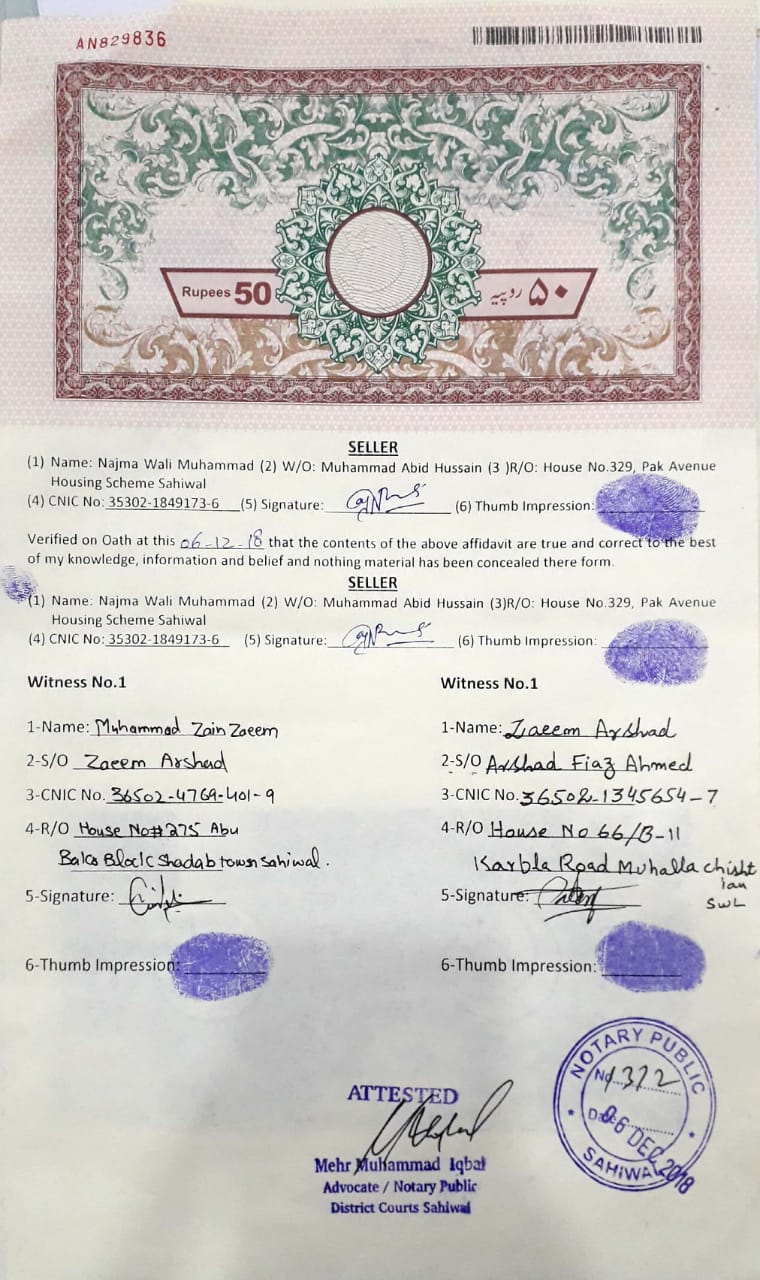 AN829836
Rupees 50
۵۰ روپیہ
SELLER
(1) Name: Najma Wali Muhammad (2) W/O: Muhammad Abid Hussain (3 )R/O: House No.329, Pak Avenue
Housing Scheme Sahiwal
(4) CNIC No: 35302-1849173-6 (5) Signature: (6) Thumb Impression:
Verified on Oath at this 06-12-18 that the contents of the above affidavit are true and correct to the best
of my knowledge, information and belief and nothing material has been concealed there form.
SELLER
(1) Name: Najma Wali Muhammad (2) W/O: Muhammad Abid Hussain (3)R/O: House No.329, Pak Avenue
Housing Scheme Sahiwal
(4) CNIC No: 35302-1849173-6 (5) Signature: (6) Thumb Impression:
Witness No.1
1-Name: Muhammad Zain Zaeem
2-S/O Zaeem Arshad
3-CNIC No. 36502-4769-401-9
4-R/O House No# 275 Abu
Bakar Block Shadab town Sahiwal.
5-Signature:
6-Thumb Impression:
Witness No.1
1-Name: Zaeem Arshad
2-S/O Arshad Fiaz Ahmed
3-CNIC No. 36502-1345654-7
4-R/O House No 66/B-11
Karbla Road Muhalla chisht
ian
SWL
5-Signature:
6-Thumb Impression:
ATTESTED
Mehr Muhammad Iqbal
Advocate / Notary Public
District Courts Sahiwal
NOTARY PUBLIC
No. 1372
Date
06 DEC 2018
SAHIWAL